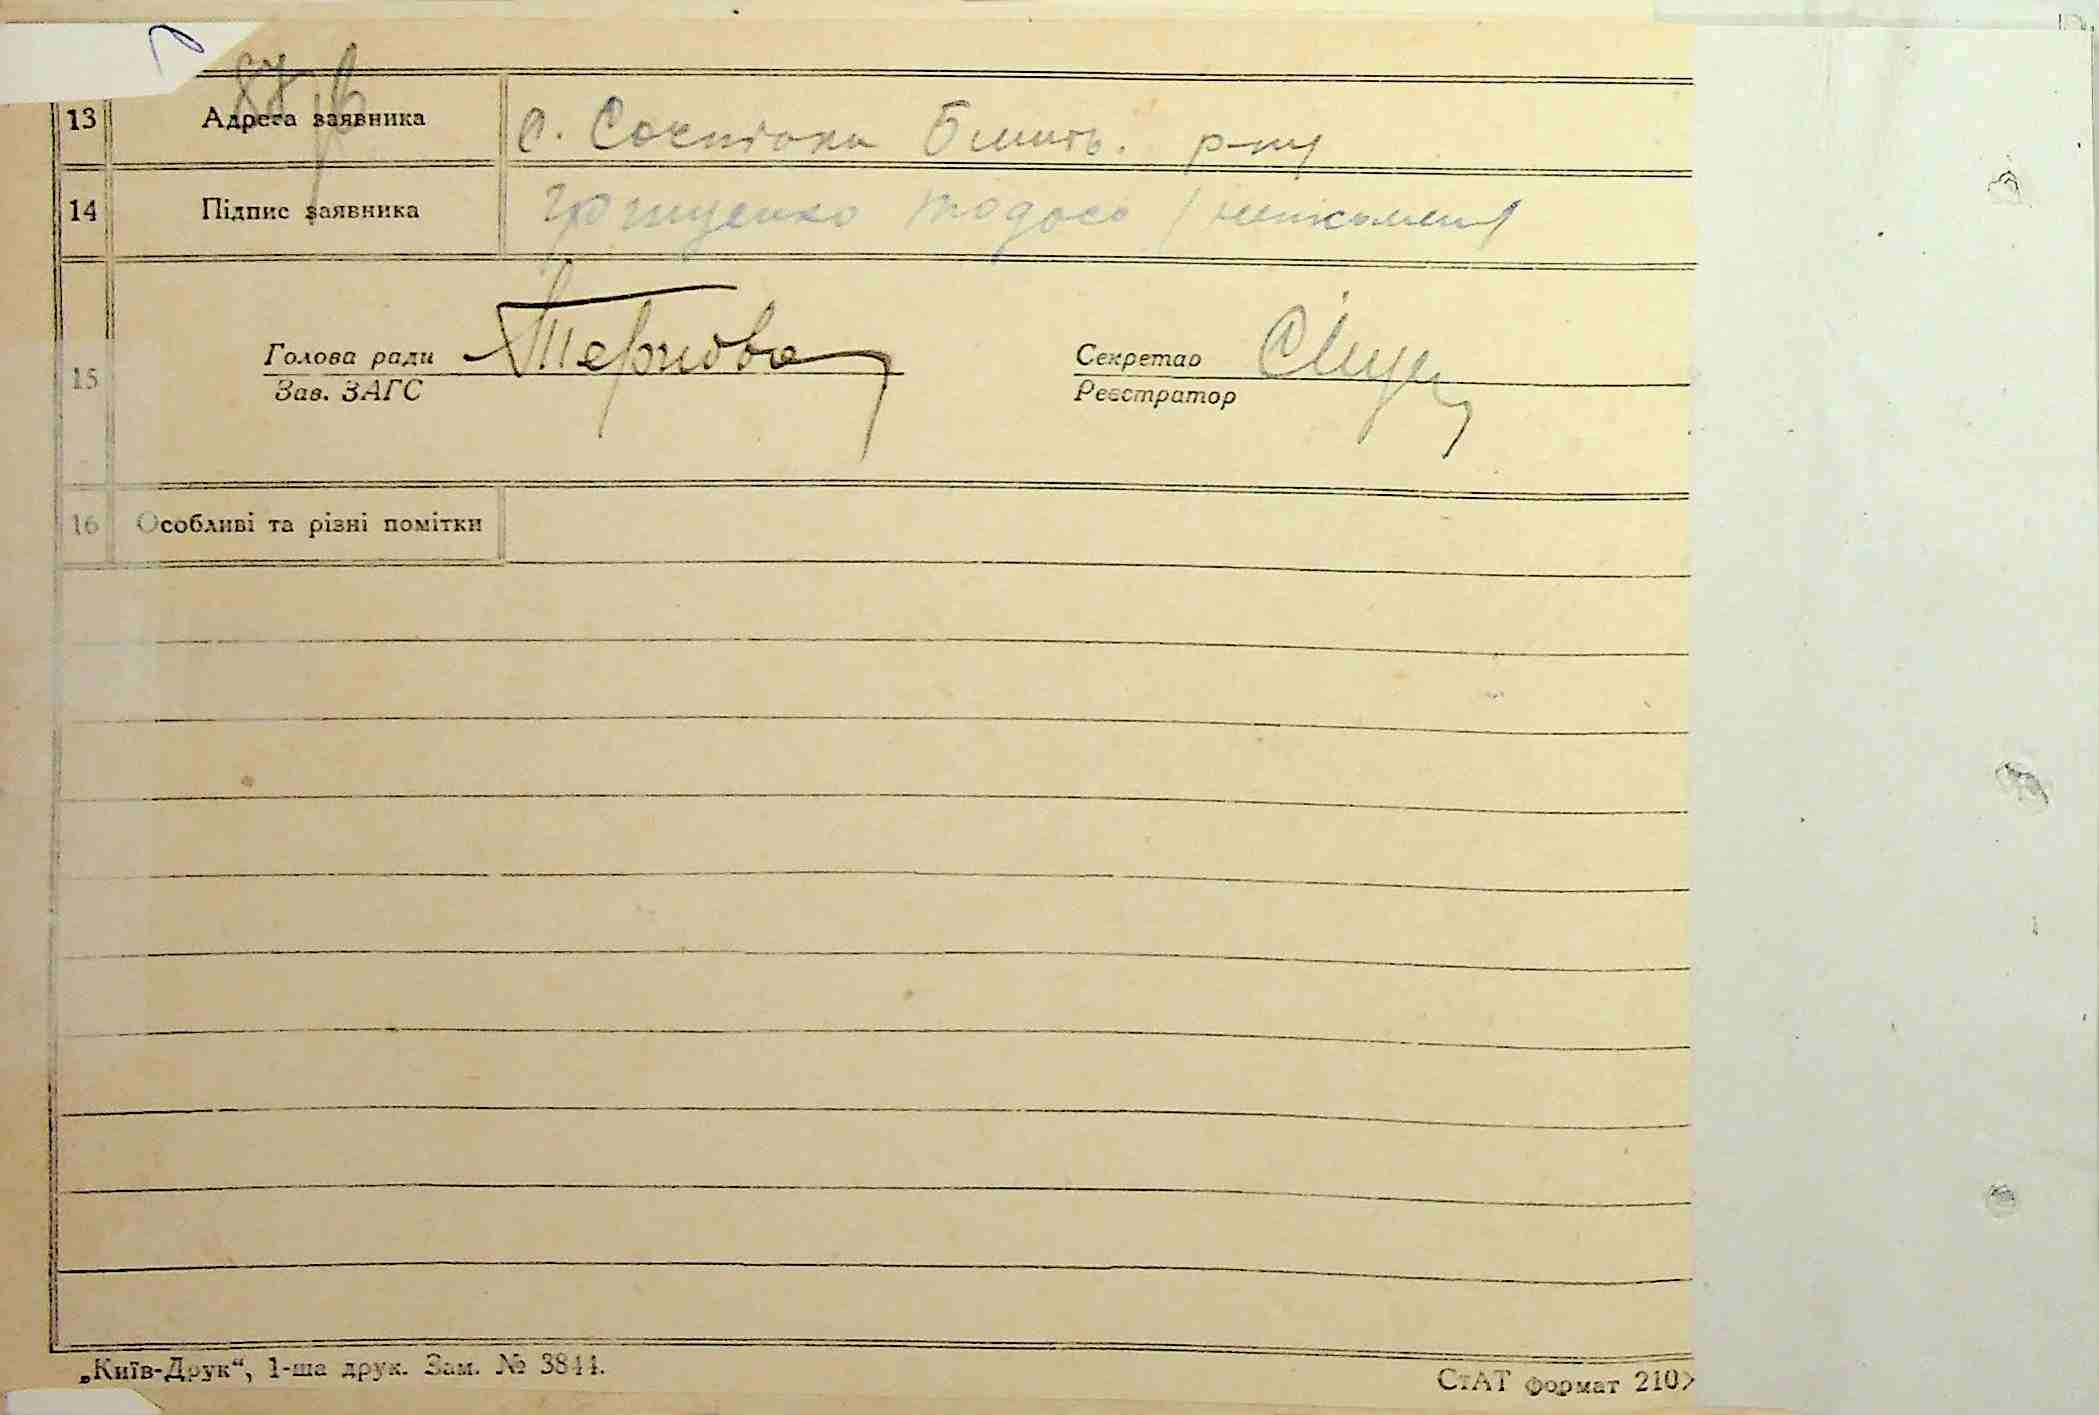 87
13 Адреса заявника с. р-ну
14 Підпис заявника Грищенко Тодось / неписьмен
15 Голова ради
Зав. ЗАГС
Секретар
Реєстратор
16 Особливі та різні помітки
„Київ-Друк“, 1-ша друк. Зам. № 3844.
СтАТ формат 210×